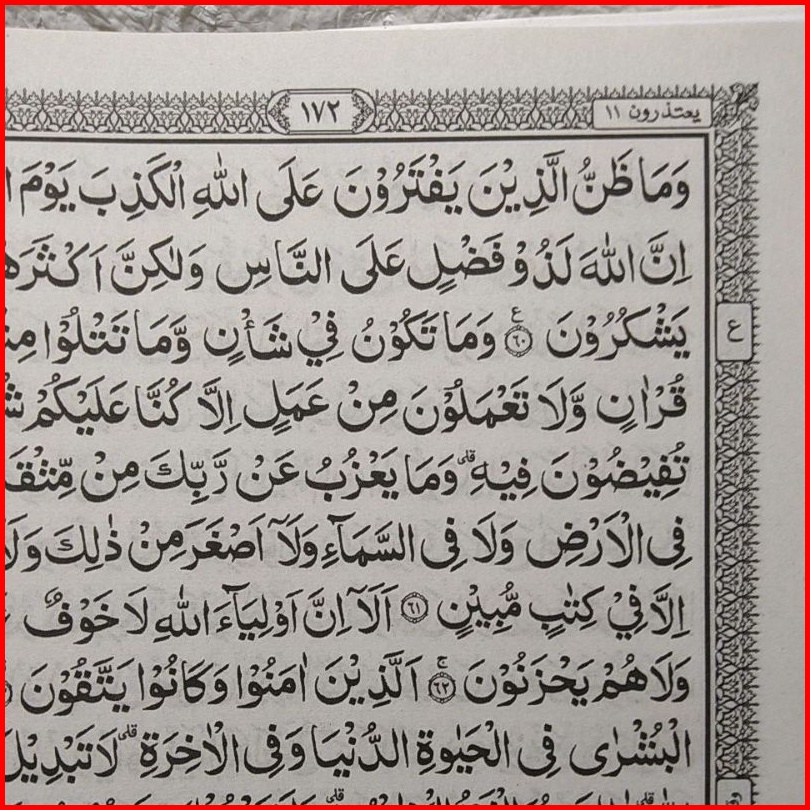 يعتذرون ١١
١٧٢
وَمَا ظَنُّ الَّذِيْنَ يَفْتَرُوْنَ عَلَى اللّٰهِ الْكَذِبَ يَوْمَ
اِنَّ اللّٰهَ لَذُوْ فَضْلٍ عَلَى النَّاسِ وَلٰكِنَّ
يَشْكُرُوْنَ ۝٦٠ ع وَمَا تَكُوْنُ فِيْ شَأْنٍ وَّمَا تَتْلُوْا
ع
قُرْاٰنٍ وَّلَا تَعْمَلُوْنَ مِنْ عَمَلٍ اِلَّا كُنَّا عَلَيْكُمْ
تُفِيْضُوْنَ فِيْهِ ۗ وَمَا يَعْزُبُ عَنْ رَّبِّكَ مِنْ
فِى الْاَرْضِ وَلَا فِى السَّمَآءِ وَلَآ اَصْغَرَ مِنْ ذٰلِكَ
اِلَّا فِيْ كِتٰبٍ مُّبِيْنٍ ۝٦١ اَلَآ اِنَّ اَوْلِيَآءَ اللّٰهِ لَا خَوْفٌ
وَلَا هُمْ يَحْزَنُوْنَ ۝٦٢ اَلَّذِيْنَ اٰمَنُوْا وَكَانُوْا يَتَّقُوْنَ
الْبُشْرٰى فِى الْحَيٰوةِ الدُّنْيَا وَفِى الْاٰخِرَةِ ۗ لَا تَبْدِيْلَ